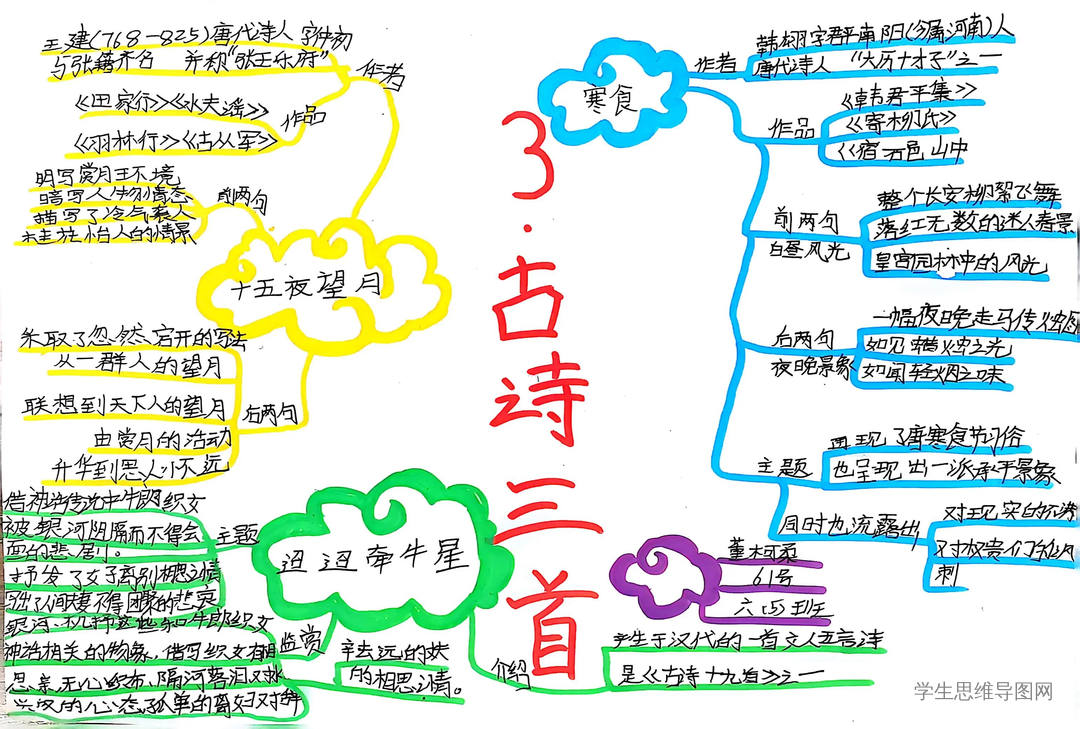 3.古诗三首
寒食
作者
韩翃字君平南阳(今属河南)人
唐代诗人 "大历十才子"之一
作品
《韩君平集》
《寄柳氏》
《宿石邑山中
前两句
白昼风光
整个长安柳絮飞舞
落红无数的迷人春景
皇宫园林中的风光
后两句
夜晚景象
一幅夜晚走马传烛图
如见蜡烛之光
如闻轻烟之味
主题
再现了唐寒食节习俗
也呈现出一派承平景象
同时也流露出
对现实的
对权贵们的讽
刺
十五夜望月
作者
王建(768-825)唐代诗人 字仲初
与张籍齐名 并称"张王乐府"
作品
《田家行》《水夫谣》
《羽林行》《古从军》
前两句
明写赏月环境
暗写人物情态
描写了冷气袭人
桂花怡人的情景
后两句
采取了忽然宕开的写法
从一群人的望月
联想到天下人的望月
由赏月的活动
升华到思人
迢迢牵牛星
主题
借神话传说中牛郎织女
被银河阻隔而不得会
面的悲剧。
抒发了女子离别相思之情
写出了人间夫妻不得团聚的悲哀
鉴赏
银河、机杼这些和牛郎织女
神话相关的物象,借写织女有
思亲、无心织布、隔河落泪
兴叹的心态
介绍
产生于汉代的一首文人五言诗
是《古诗十九首》之一
的相思之情。
董柯柔
61号
六(5)班
学生思维导图网